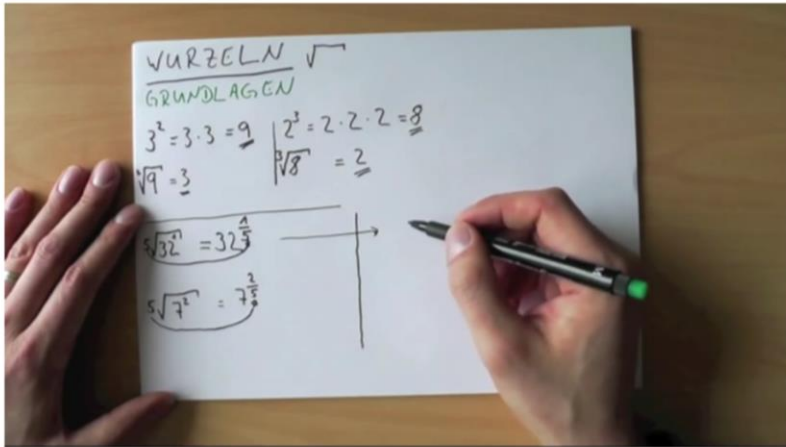 WURZELN √
GRUNDLAGEN
3² = 3 · 3 = 9
2³ = 2 · 2 · 2 = 8
²√9 = 3
³√8 = 2
⁵√32¹ = 32^(1/5)
⁵√7² = 7^(2/5)